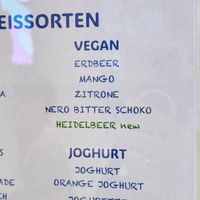 EISSORTEN
VEGAN
ERDBEER
MANGO
ZITRONE
NERO BITTER SCHOKO
HEIDELBEER new
JOGHURT
JOGHURT
ORANGE JOGHURT